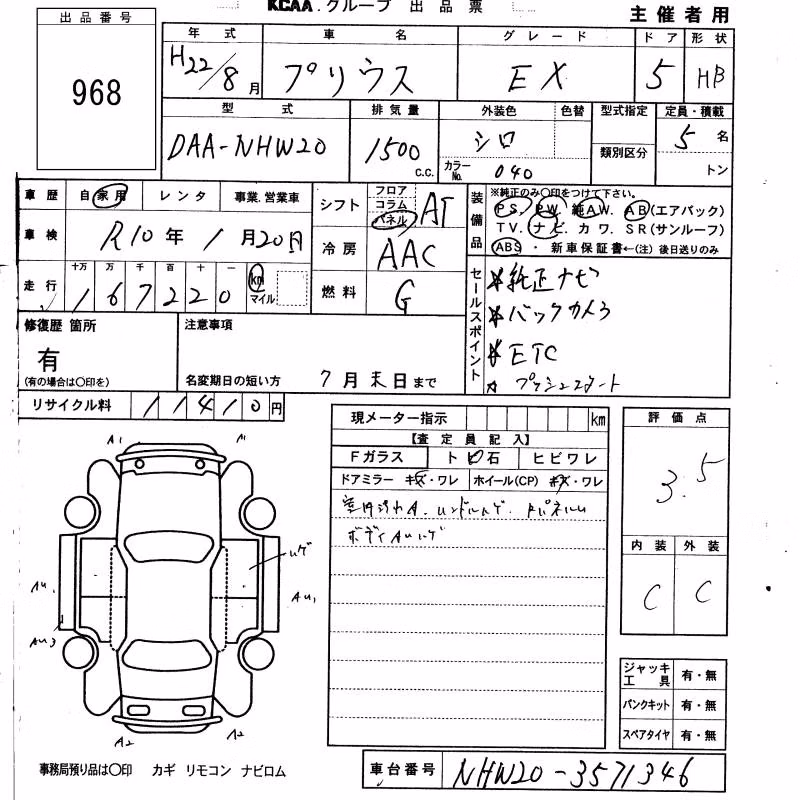 KCAA.グループ 出品票
主催者用
出品番号
968
年式 車名 グレード ドア 形状
H22/8月 プリウス EX 5 HB
型式 排気量 外装色 色替 型式指定 定員・積載
DAA-NHW20 1500 C.C. シロ 類別区分 5名
カラーNo. 040 トン
車歴 自家用 レンタ 事業.営業車
車検 R10年 1月20日
走行 十万 万 千 百 十 一
167220 km マイル
シフト フロア コラム パネル AT
冷房 AAC
燃料 G
装備品
※純正のみ○印をつけて下さい。
PS. PW. 純AW. AB(エアバック)
TV. ナビ. カワ. SR(サンルーフ)
ABS ・ 新車保証書←(注)後日送りのみ
セールスポイント
純正ナビ
バックカメラ
ETC
プッシュスタート
修復歴 箇所
有
(有の場合は○印を)
注意事項
名変期日の短い方 7月末日まで
リサイクル料 11410円
現メーター指示 km
【査定員記入】
Fガラス ト ビ 石 ヒビワレ
ドアミラー キズ・ワレ ホイール(CP) キズ・ワレ
ボディAUハゲ
評価点
3.5
内装 外装
C C
A1 A1
ハゲ
AU1 AU1
AU3
A2 A2
ジャッキ工具 有・無
パンクキット 有・無
スペアタイヤ 有・無
事務局預り品は○印 カギ リモコン ナビロム
車台番号 NHW20-3571346